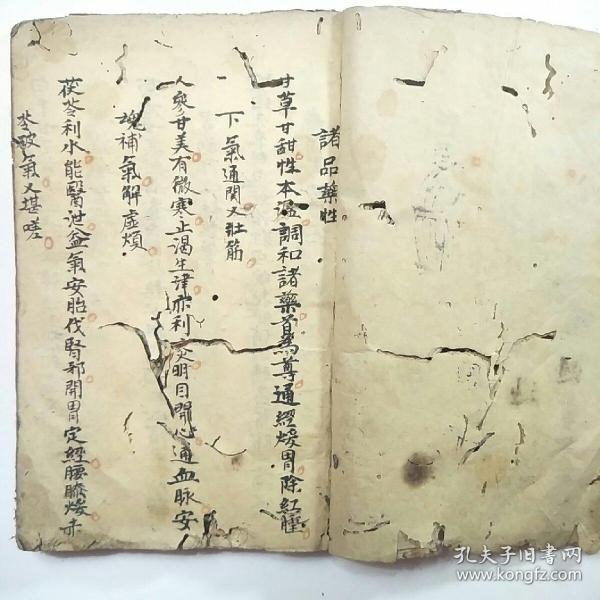 諸品藥性
甘草甘甜性本溫調和諸藥首為尊通經煖胃除紅腫
下氣通関又壯筋
人參甘美有微寒止渴生津亦利明目開心通血脉安
魂補氣解虛煩
茯苓利水能醫泄益氣安胎伐腎邪開胃定經腰膝煖赤
苓破氣又堪嗟
孔夫子旧书网
www.kongfz.com